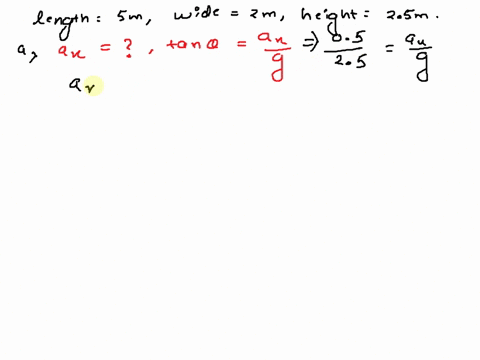 length: 5m, wide = 2m, height: 2.5m.
a, ax = ?, tanθ = ax/g ⇒ 0.5/2.5 = ax/g
ax